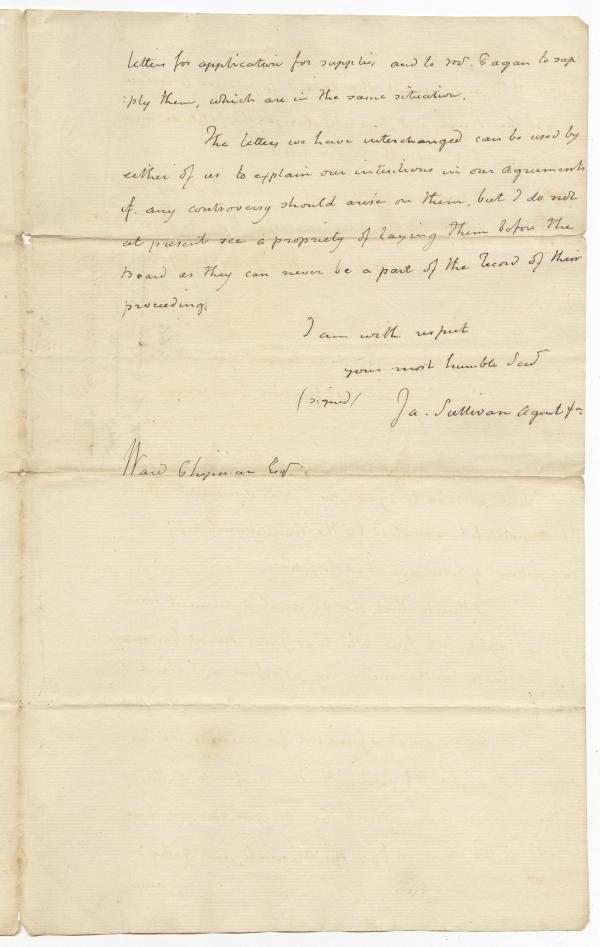 letters for application for supplies and to Mr. Eagan to sup
:ply them, which are in the same situation.
The letters we have interchanged can be used by
either of us to explain our intentions in our agreements
if any controversy should arise on them, but I do not
at present see a propriety of laying them before the
Board as they can never be a part of the record of their
proceeding.
I am with respect
your most humble Servt
(signed) Ja. Sullivan Agent &c
Ward Chipman Esqr.